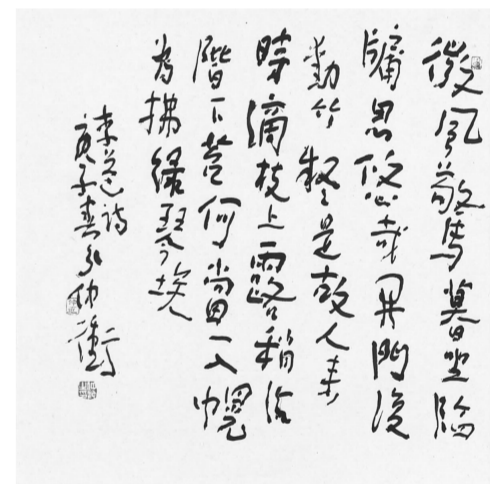 微風驚暮坐臨
牖思悠哉開門復
動竹疑是故人來
時滴枝上露稍沾
階下苔何當一入幌
為拂綠琴埃
李益詩
庚子春仲衡